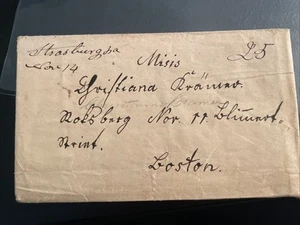 Strasburg Pa
Nov 14
25
Misis
Christiana Krämer.
Rocksberg Nor. 11 Blimert-
Strint.
Boston.